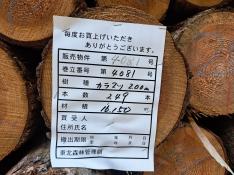 毎度お買上げいただき
ありがとうございます。
販売物件 第 4081 号
巻立番号 第 4081 号
樹種 カラマツ 2.00m
本数 249 本
材積 16.150 m³
買受人
住所氏名
搬出期限 年 月 日
東北森林管理局